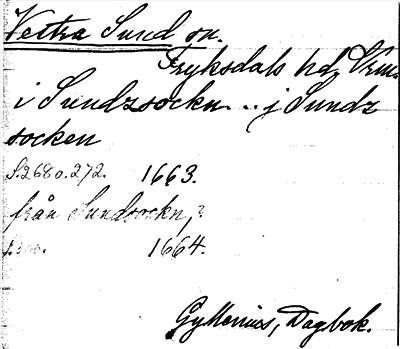 Vestra Sund sn.
Fryksdals hd, Vrml.
i Sundzsockn .. j Sundz
socken
S. 268 o. 272. 1663.
från Sundsockn,
1664.
Gyllenius, Dagbok.